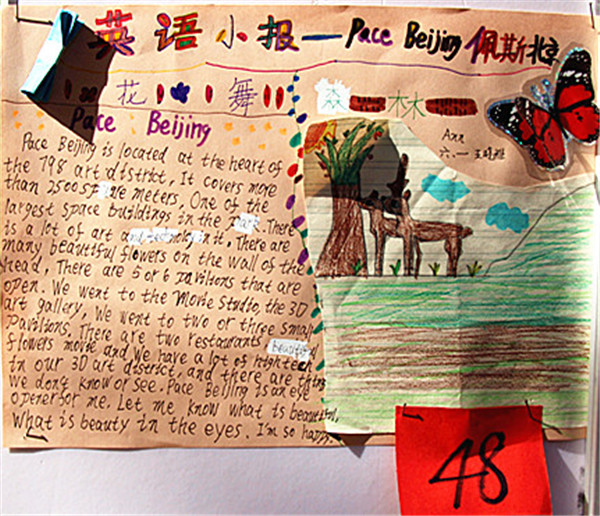 英语小报—Pace Beijing 佩斯北京
花 舞
森 林
Ann
六.一
Pace Beijing
Pace Beijing is located at the heart of
the 798 art district, It covers more
than 2500 square meters, One of the
largest space buildings in the There
is a lot of art and technology in it. There are
many beautiful flowers on the wall of the
head, There are 5 or 6 pavilions that are
open. We went to the Movie Studio, the 3D
art gallery, We went to two or three small
pavilions, There are two restaurants, beautiful
flowers movie and we have a lot of hightech
in our 3D art district, and there are things
we don't know or see. Pace Beijing is an eye
opener for me. Let me know what is beautiful,
What is beauty in the eyes. I'm so happy.
48